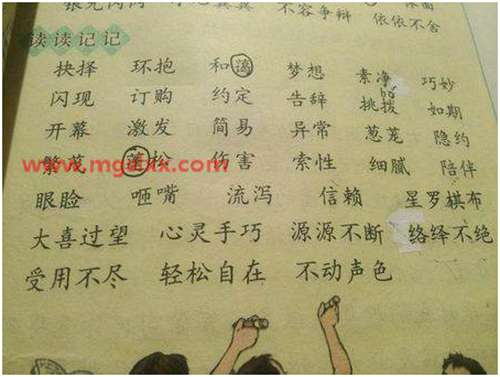 不容争辩
依依不舍
读读记记
抉择 环抱 和谐 梦想 素净 巧妙
bō
闪现 订购 约定 告辞 挑拨 如期
开幕 激发 简易 异常 葱茏 隐约
繁茂 蓬松 伤害 索性 细腻 陪伴
www.mgzxx.com
眼睑 咂嘴 流泻 信赖 星罗棋布
大喜过望 心灵手巧 源源不断 络绎不绝
受用不尽 轻松自在 不动声色